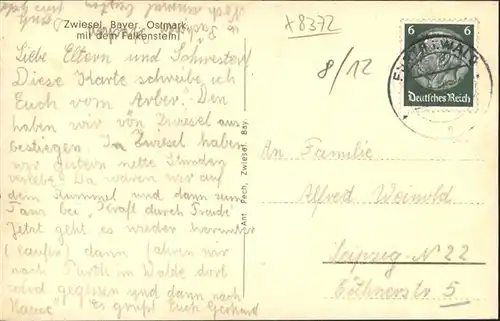 Zwiesel, Bayer. Ostmark
mit dem Falkenstein
x8372
8/12
6 6
Deutsches Reich
Liebe Eltern und Schwester!
Diese Karte schreibe ich
Euch vom Arber. Den
haben wir von Zwiesel aus
bestiegen. In Zwiesel haben
wir gestern nette Stunden
verlebt. Da waren wir auf
dem Rummel und dann zum
Tanz bei "Kraft durch Freude"
Jetzt geht es wieder herunter
(laufen) dann fahren wir
nach Furth im Walde dort
wird gegessen und dann nach
"Hause" Es grüßt Euch Gerhard
Ant. Pech, Zwiesel, Bay.
An Familie
Alfred Weinold
Leipzig-N 22
Cöthnerstr 5